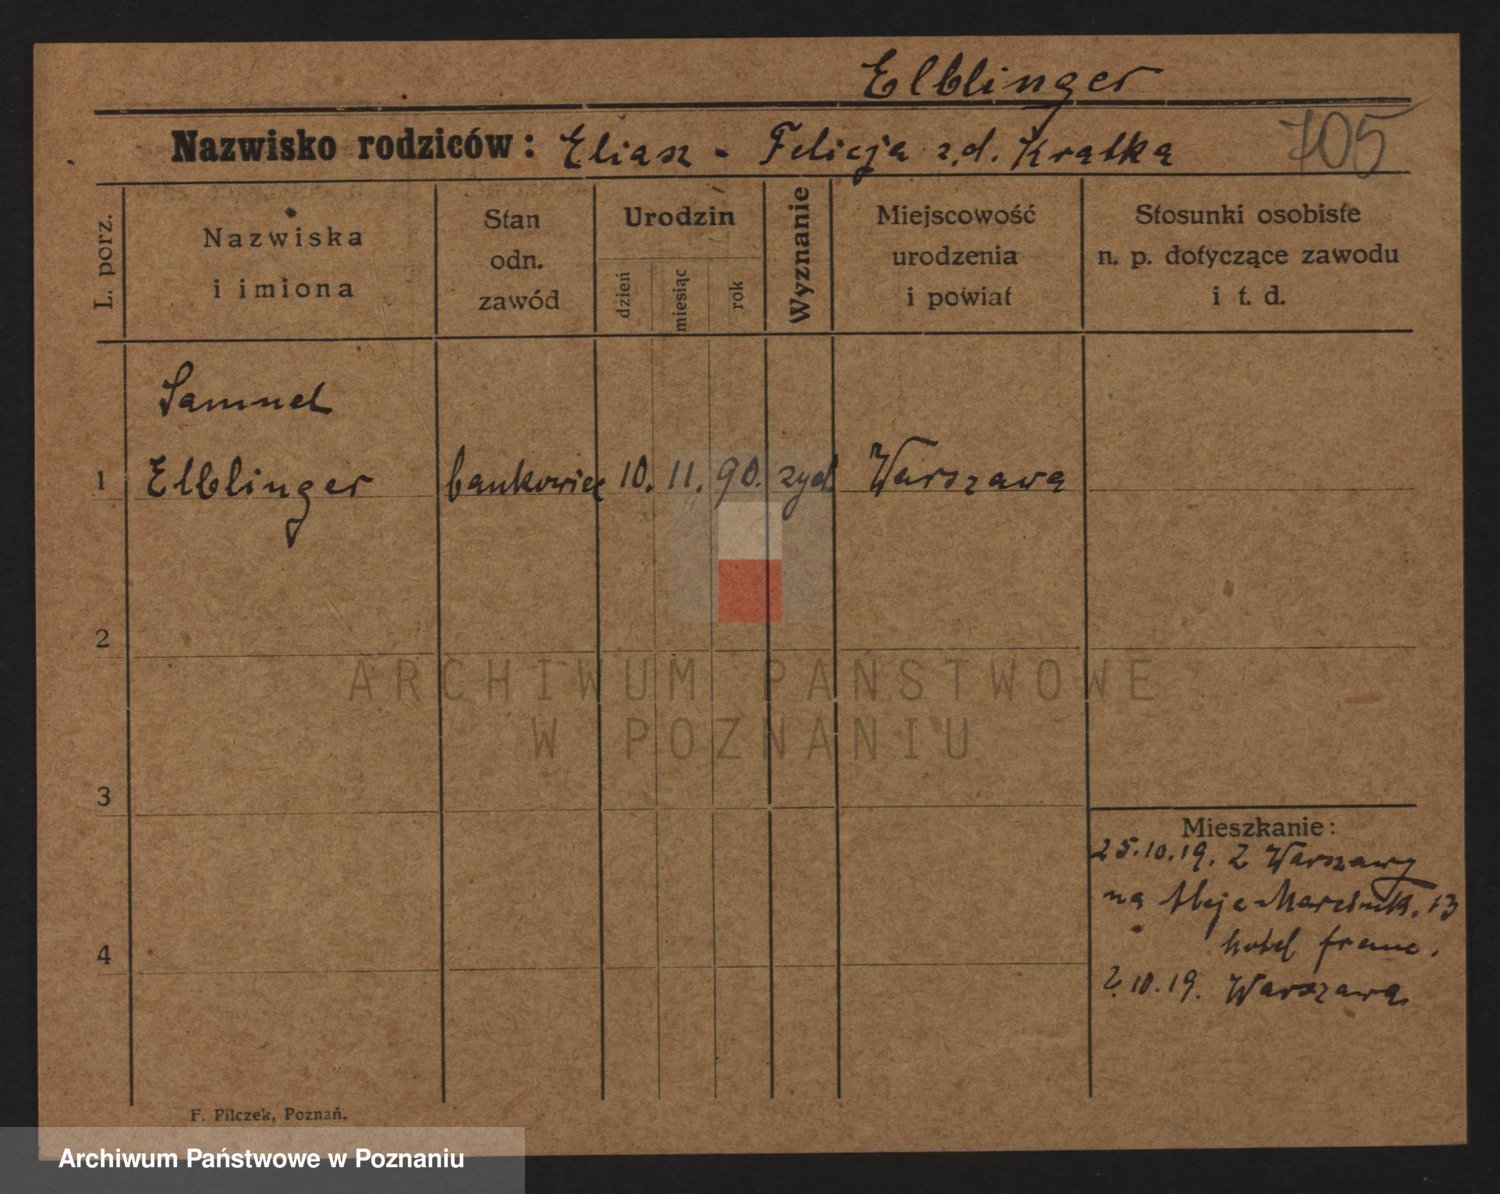 Elblinger
Nazwisko rodziców: Eliasz - Felicja z d. Kratka
705
L. porz.
Nazwiska
i imiona
Stan
odn.
zawód
Urodzin
dzień
miesiąc
rok
Wyznanie
Miejscowość
urodzenia
i powiat
Stosunki osobiste
n. p. dotyczące zawodu
i t. d.
Samuel
1 Elblinger bankowiec 10. 11. 90. żyd. Warszawa
2
ARCHIWUM PAŃSTWOWE
W POZNANIU
3
Mieszkanie:
25.10.19. Z Warszawy
na Aleje Marcink. 13
hotel franc.
2.10.19. Warszawa
4
F. Pilczek, Poznań.
Archiwum Państwowe w Poznaniu